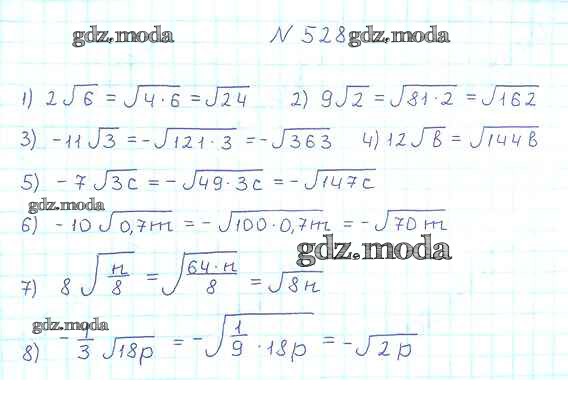 gdz.moda № 528 gdz.moda
1) 2√6 = √4·6 = √24 2) 9√2 = √81·2 = √162
3) -11√3 = -√121·3 = -√363 4) 12√в = √144в
5) -7√3c = -√49·3c = -√147c
gdz.moda
6) -10√0,7m = -√100·0,7m = -√70m
gdz.moda
7) 8√n/8 = √64·n/8 = √8n
gdz.moda
8) -1/3√18p = -√1/9·18p = -√2p